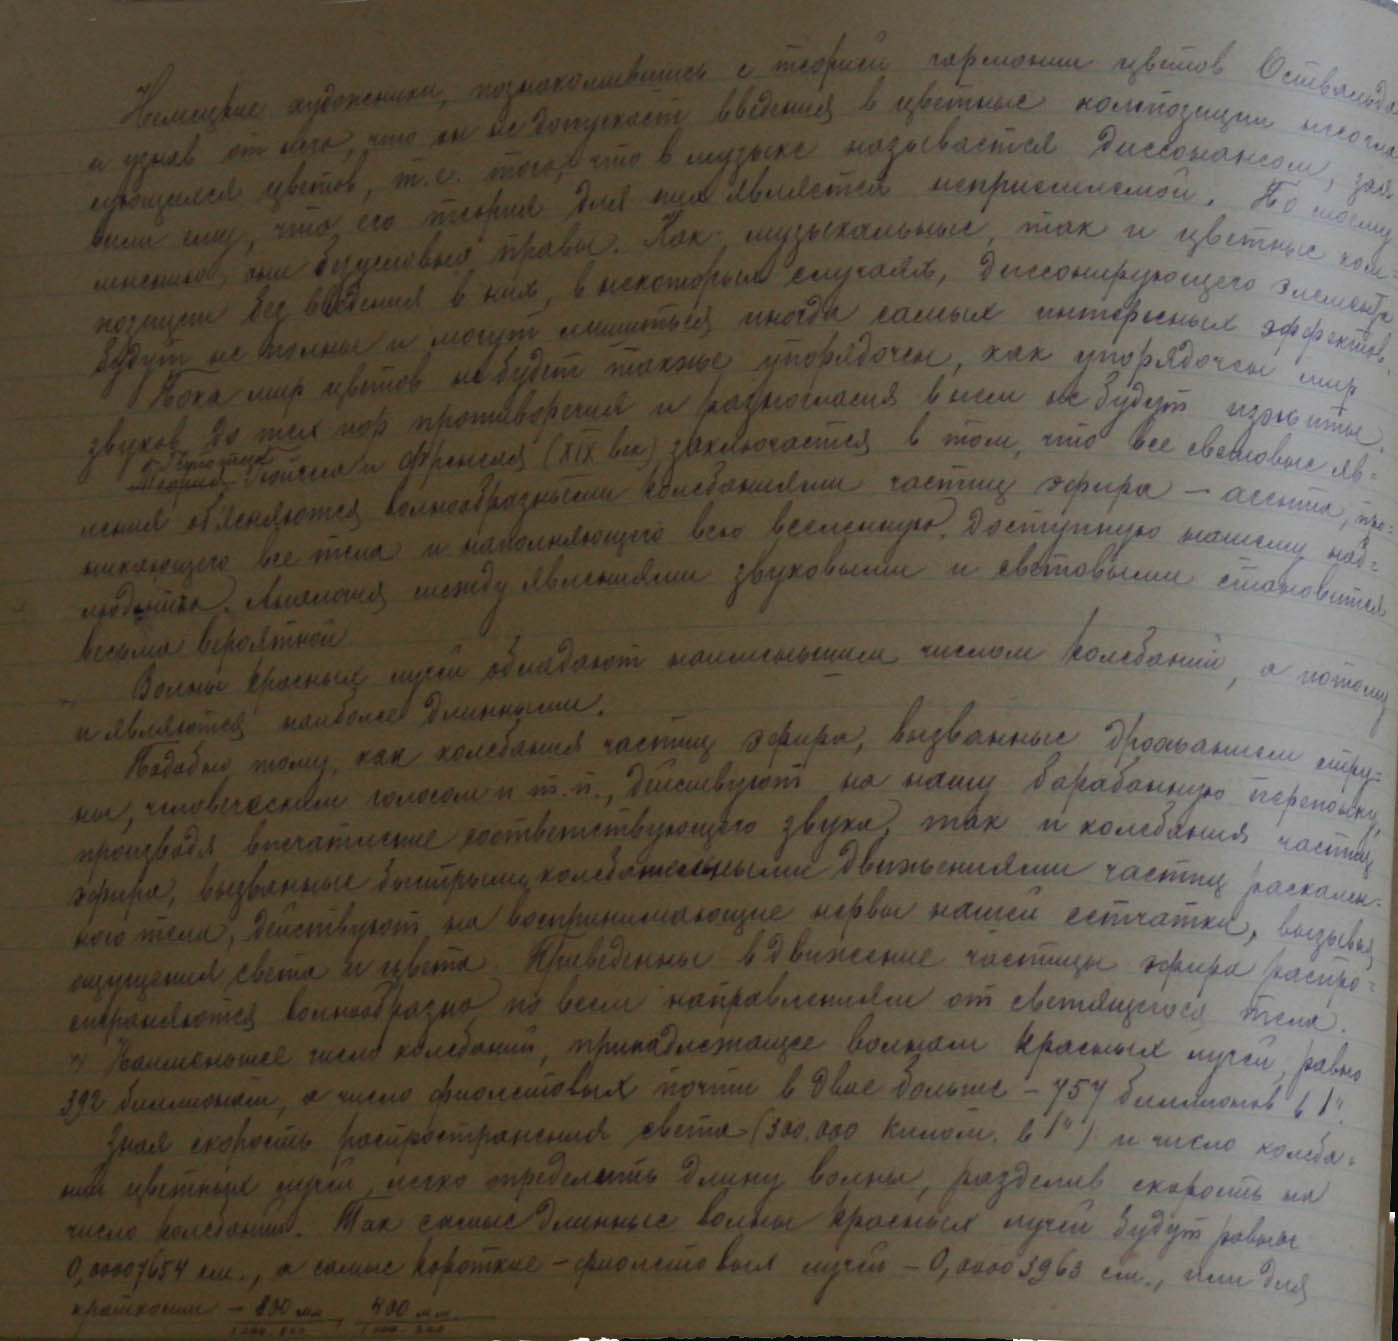 Немецкие художники, познакомившись с теорией гармонии цветов Оствальда
и узнав от него, что он не допускает введения в цветные композиции несогла
сующихся цветов, т.е. того, что в музыке называется диссонансом, зая
вили ему, что его теория для них является неприемлемой. По моему
мнению, они безусловно правы. Как музыкальные, так и цветные ком-
позиции без введения в них, в некоторых случаях, диссонирующего элемента
будут не полны и могут лишиться иногда самых интересных эффектов.
Пока мир цветов не будет также упорядочен, как упорядочен мир
звуков, до тех пор противоречия и разногласия в нем не будут изжиты.
Гипотеза
Теория Гюйгенса и Френеля (XIX век) заключается в том, что все световые яв=
ления объясняются волнообразными колебаниями частиц эфира — агента, про-
никающего все тела и наполняющего всю вселенную, доступную нашему наб=
людению. Аналогия между явлениями звуковыми и световыми становится
весьма вероятной
Волны красных лучей обладают наименьшим числом колебаний, а потому
и являются наиболее длинными.
Подобно тому, как колебания частиц эфира, вызванные дрожанием стру=
ны, человеческим голосом и т.п., действуют на нашу барабанную перепонку,
производя впечатление соответствующего звука, так и колебания частиц
эфира, вызванные быстрыми колебательными движениями частиц раскален-
ного тела, действуют на воспринимающие нервы нашей сетчатки, вызывая
ощущения света и цвета. Приведенны в движение частицы эфира распро=
страняются волнообразно по всем направлениям от светящегося тела.
Наименьшее число колебаний, принадлежащее волнам красных лучей, равно
392 биллионам, а число фиолетовых почти в двое больше — 757 биллионов в 1".
Зная скорость распространения света (300.000 килом. в 1") и число колеба-
ний цветных лучей, легко определить длину волны, разделив скорость на
число колебаний. Так самые длинные волны красных лучей будут равны
0,00007654 см., а самые короткие — фиолетовых лучей — 0,00003963 см., или для
краткости — 800 мм 400 мм